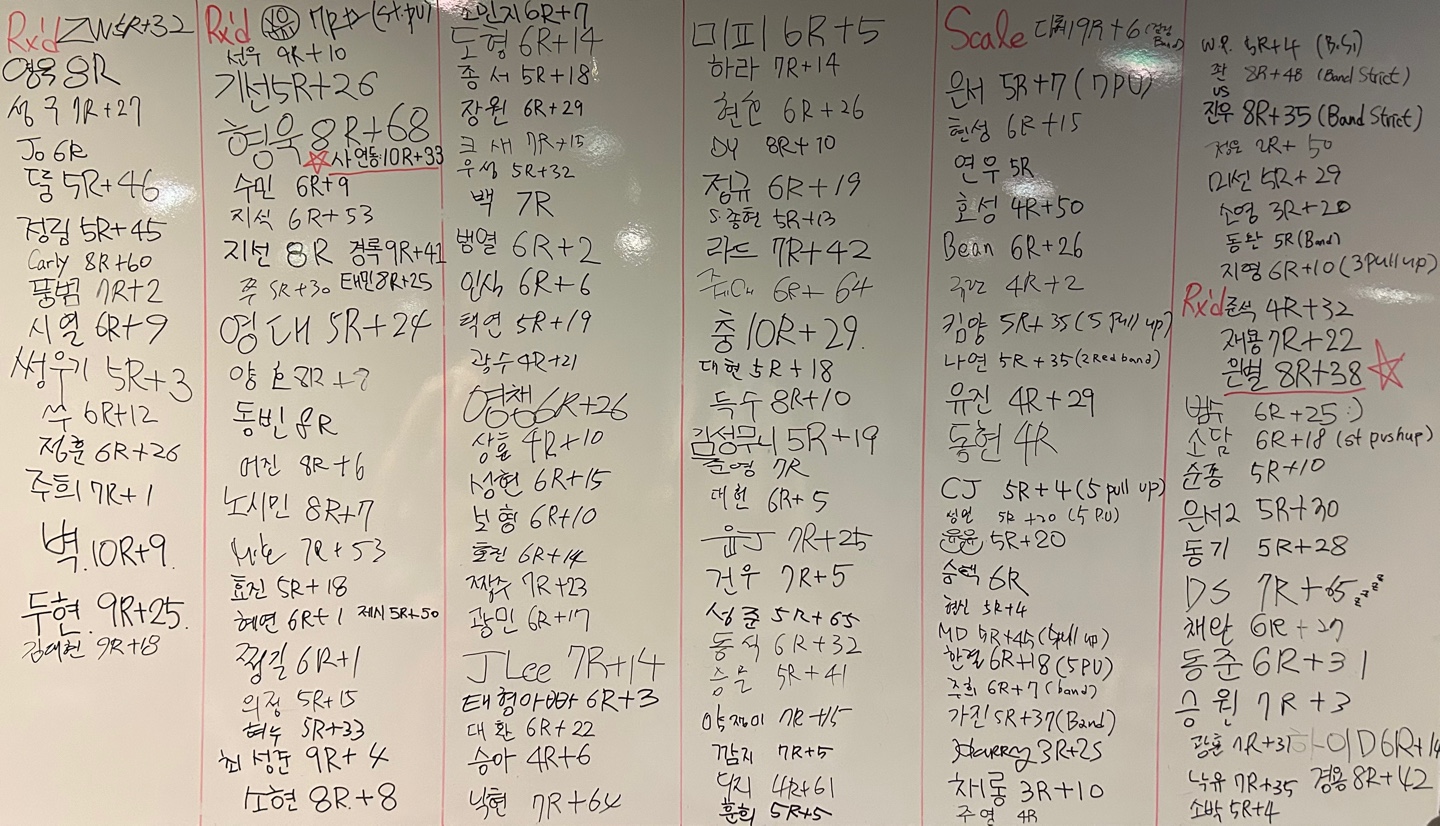 Rx'd ZW 5R+32
영욱 8R
성국 7R+27
Jo 6R
둘 5R+46
정림 5R+45
Carly 8R+60
풍범 7R+2
시열 6R+9
썽우기 5R+3
쓰 6R+12
정훈 6R+26
주희 7R+1
벽 10R+9
두현 9R+25
김대현 9R+18
Rx'd 7R (st.pu)
선우 9R+10
개선 5R+26
형욱 8R+68
사연동 10R+33
수민 6R+9
지석 6R+53
지선 8R 경록 9R+41
쭈 5R+30 태민 8R+25
영대 5R+24
양 8R+8
동빈 8R
어진 8R+6
노시민 8R+7
7R+53
효진 5R+18
혜연 6R+1 제시 5R+50
쩡길 6R+1
의정 5R+15
혀누 5R+33
최성준 9R+4
소현 8R+8
소민지 6R+7
도형 6R+14
종서 5R+18
장원 6R+29
크새 7R+15
우성 5R+32
백 7R
범열 6R+2
인식 6R+6
택연 5R+19
광수 4R+21
영채 6R+26
상훈 4R+10
성현 6R+15
보형 6R+10
효진 6R+14
짭수 7R+23
광민 6R+17
J Lee 7R+14
태형아빠 6R+3
대환 6R+22
승아 4R+6
낙현 7R+64
미피 6R+5
하라 7R+14
현호 6R+26
DY 8R+10
정규 6R+19
S.종현 5R+13
라드 7R+42
6R+64
충 10R+29
대현 5R+18
득수 8R+10
김성무니 5R+19
준영 7R
대헌 6R+5
윤J 7R+25
건우 7R+5
성준 5R+65
동석 6R+32
승운 5R+41
약쟁이 7R+15
깜지 7R+5
4R+61
훈희 5R+5
Scale 다희 9R+6
은서 5R+7 (7PU)
현성 6R+15
연우 5R
호성 4R+50
Bean 6R+26
4R+2
킴양 5R+35 (5 pull up)
나연 5R+35 (2 Red band)
유진 4R+29
동현 4R
CJ 5R+4 (5 pull up)
성연 5R+20 (5 P.U)
윤윤 5R+20
승택 6R
형신 5R+4
MD 5R+45 (5pull up)
한결 6R+18 (5PU)
주희 6R+7 (band)
가진 5R+37 (Band)
3R+25
채롱 3R+10
주영 4R
W.P. 5R+4 (B.S)
좐 8R+48 (Band Strict)
vs
진우 8R+35 (Band Strict)
정운 2R+50
미선 5R+29
소영 3R+20
동완 5R (Band)
지영 6R+10 (3 pull up)
Rx'd 준석 4R+32
재용 7R+22
은별 8R+38
범뉴 6R+25 :)
소담 6R+18 (st pushup)
순종 5R+10
은서2 5R+30
동기 5R+28
DS 7R+65 zzzz
채완 6R+27
동준 6R+31
승원 7R+3
광훈 7R+31 하이D 6R+14
낙유 7R+35 경용 8R+42
소박 5R+4